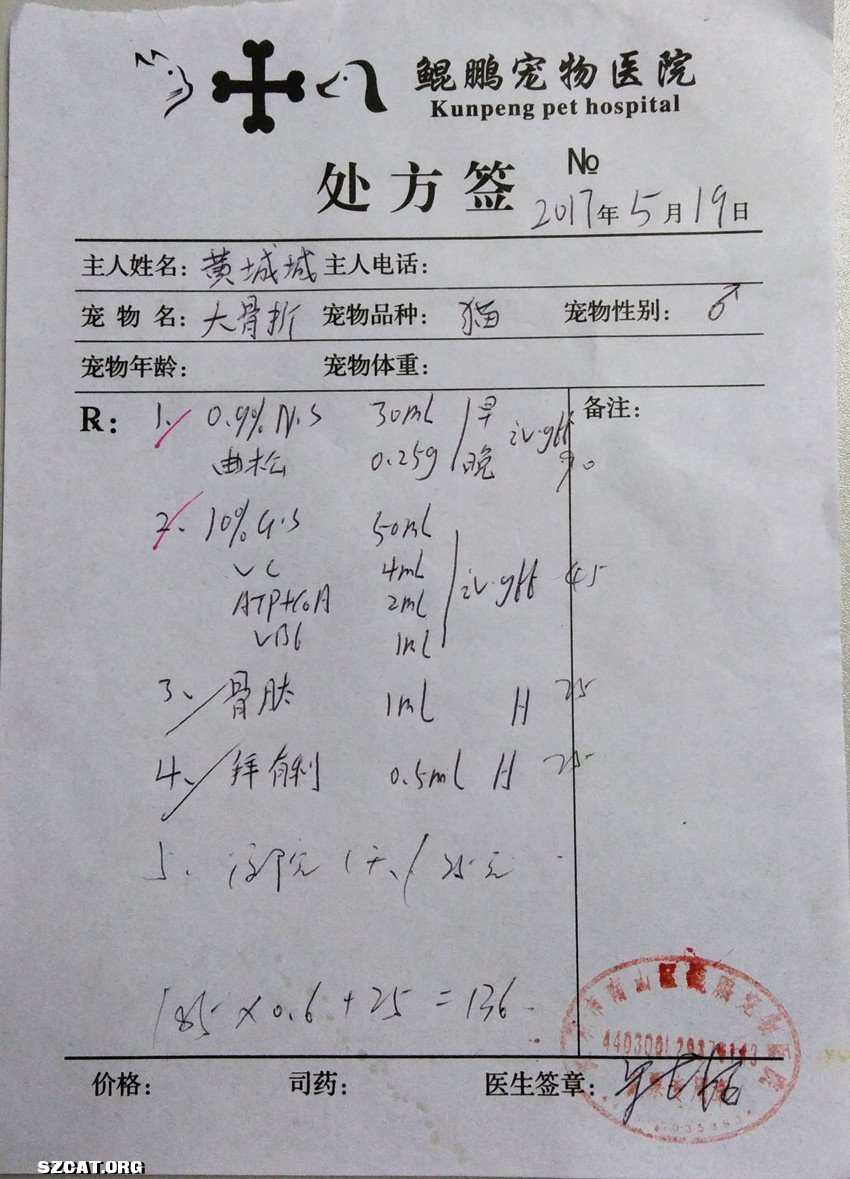 鲲鹏宠物医院
Kunpeng pet hospital
处方签 №
2017年5月19日
主人姓名：黄城城 主人电话：
宠物名：大骨折 宠物品种：猫 宠物性别：♂
宠物年龄： 宠物体重：
R： 备注：
1、 0.9% N.S 30ml 早 iv.gtt
曲松 0.25g 晚 90
2、 10% G.S 50ml
VC 4ml iv.gtt 45
ATP+CoA 2ml
VB6 1ml
3、 骨肽 1ml H 25
4、 拜有利 0.5ml H 25
5、 住院 1天/25元
185×0.6+25=136
价格： 司药： 医生签章：
SZCAT.ORG